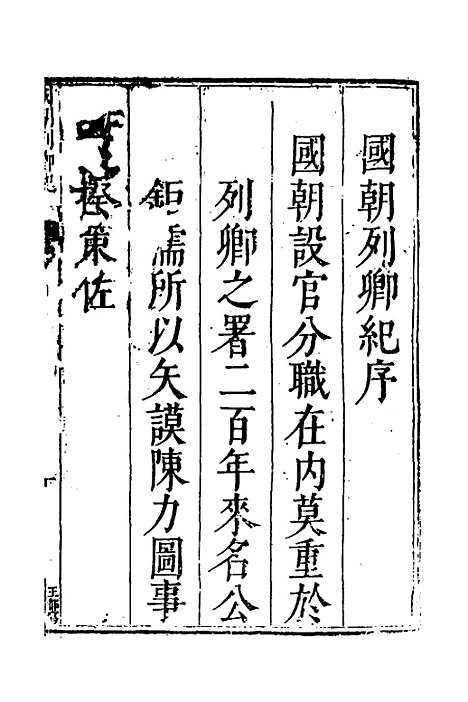 國朝列卿紀序
國朝設官分職在內莫重於
列卿之署二百年來名公
鉅儒所以矢謨陳力圖事
揆策佐